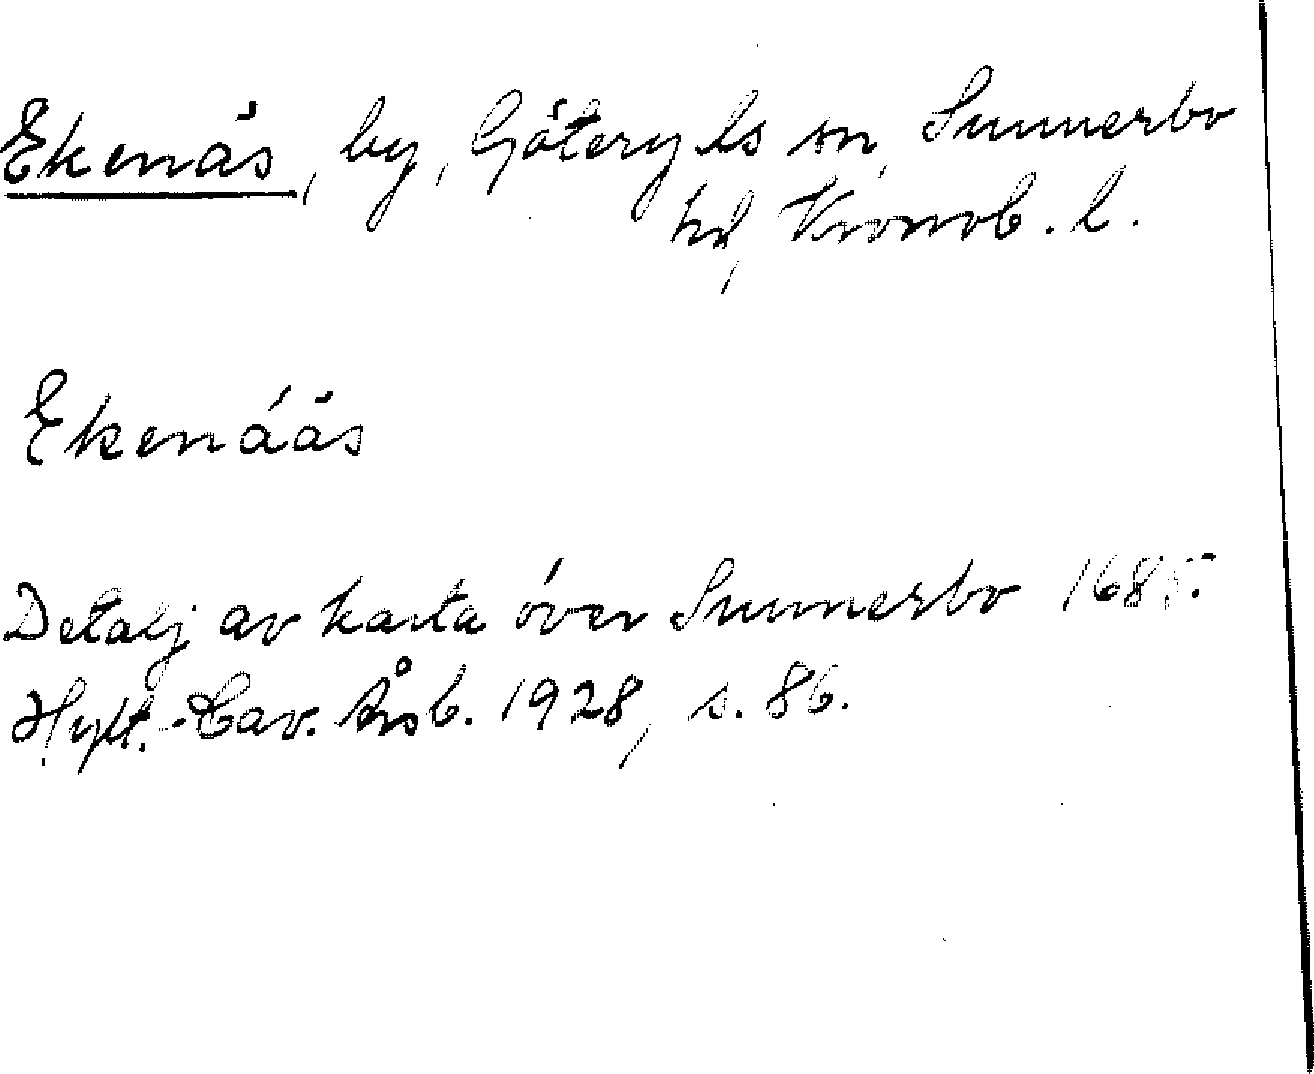 Ekenäs, by, Göteryds sn, Sunnerbo
hd, Kronob. l.
Ekenääs
Detalj av karta över Sunnerbo 1685.
Hylt.-Cav. Årsb. 1928, s. 86.